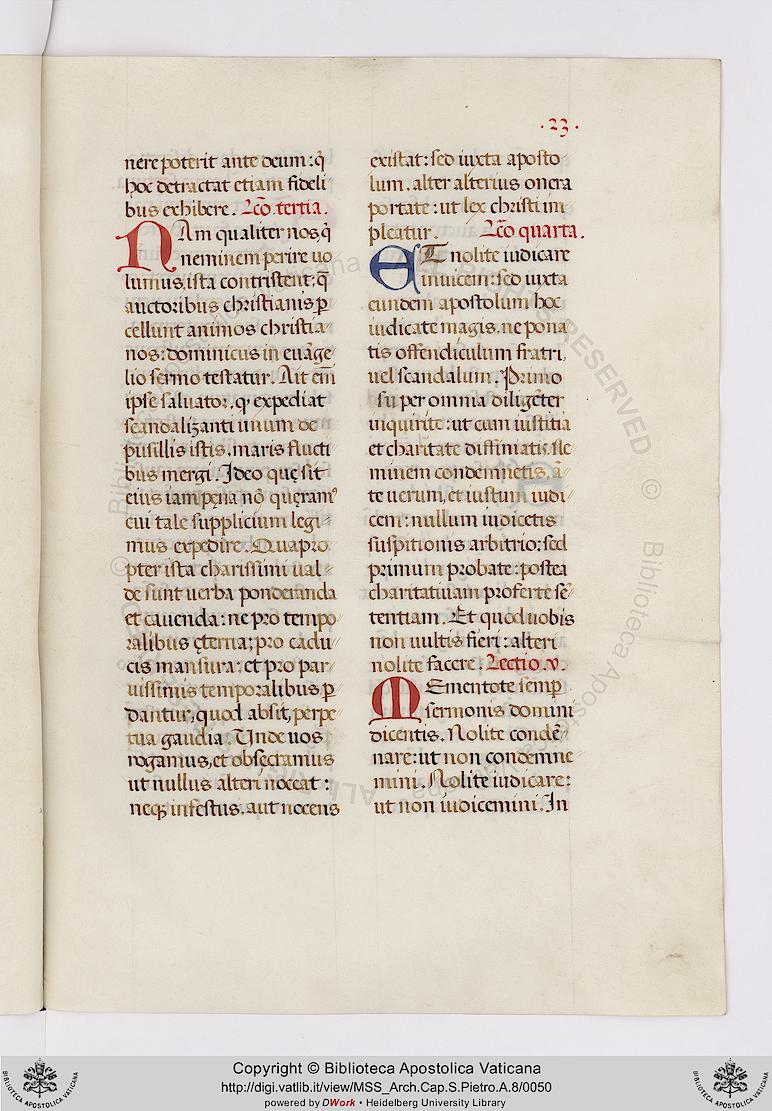 ·23·
nere poterit ante deum: q̃
hoc detractat etiam fideli
bus exhibere. Lc̃o. tertia.
NAm qualiter nos, q̃
neminem perire uo
lumus, ista contristent: q̃
auctoribus christianis p̱
cellunt animos christia⸗
nos: dominicus in euãge⸗
lio sermo testatur. Ait em̃
ipse saluator, qꝫ expediat
scandalizanti unum de
pusillis istis, maris flucti
bus mergi. Ideo quę sit
eius iam pęna nõ quęramꝰ
cui tale supplicium legi⸗
mus expedire. Quapro
pter ista charissimi ual⸗
de sunt uerba ponderanda
et cauenda: ne pro tempo
ralibus ęterna; pro cadu
cis mansura; et pro par
uissimis temporalibus p̱
dantur, quod absit, perpe
tua gaudia. Unde uos
rogamus, et obsecramus
ut nullus alteri noceat:
neqꝫ infestus, aut nocens
existat: sed iuxta aposto
lum, alter alterius onera
portate: ut lex christi im
pleatur. Lc̃o quarta.
ET nolite iudicare
inuicem: sed iuxta
eundem apostolum hoc
iudicate magis, ne pona
tis offendiculum fratri,
uel scandalum. Primo
super omnia diligẽter
inquirite: ut cum iustitia
et charitate diffiniatis. Ne
minem condemnetis, ã
te uerum, et iustum iudi
cem: nullum iudicetis
suspitionis arbitrio: sed
primum probate: postea
charitatiuam proferte sẽ
tentiam. Et quod uobis
non uultis fieri: alteri
nolite facere. Lectio. v.
MEmentote semp̱
sermonis domini
dicentis. Nolite condẽ⸗
nare: ut non condemne
mini. Nolite iudicare:
ut non iudicemini. In
© Biblioteca Apostolica Vaticana ALL RIGHTS RESERVED © Biblioteca Apostolica Vaticana
Copyright © Biblioteca Apostolica Vaticana
http://digi.vatlib.it/view/MSS_Arch.Cap.S.Pietro.A.8/0050
powered by DWork • Heidelberg University Library
BIBLIOTECA APOSTOLICA VATICANA
BIBLIOTECA APOSTOLICA VATICANA